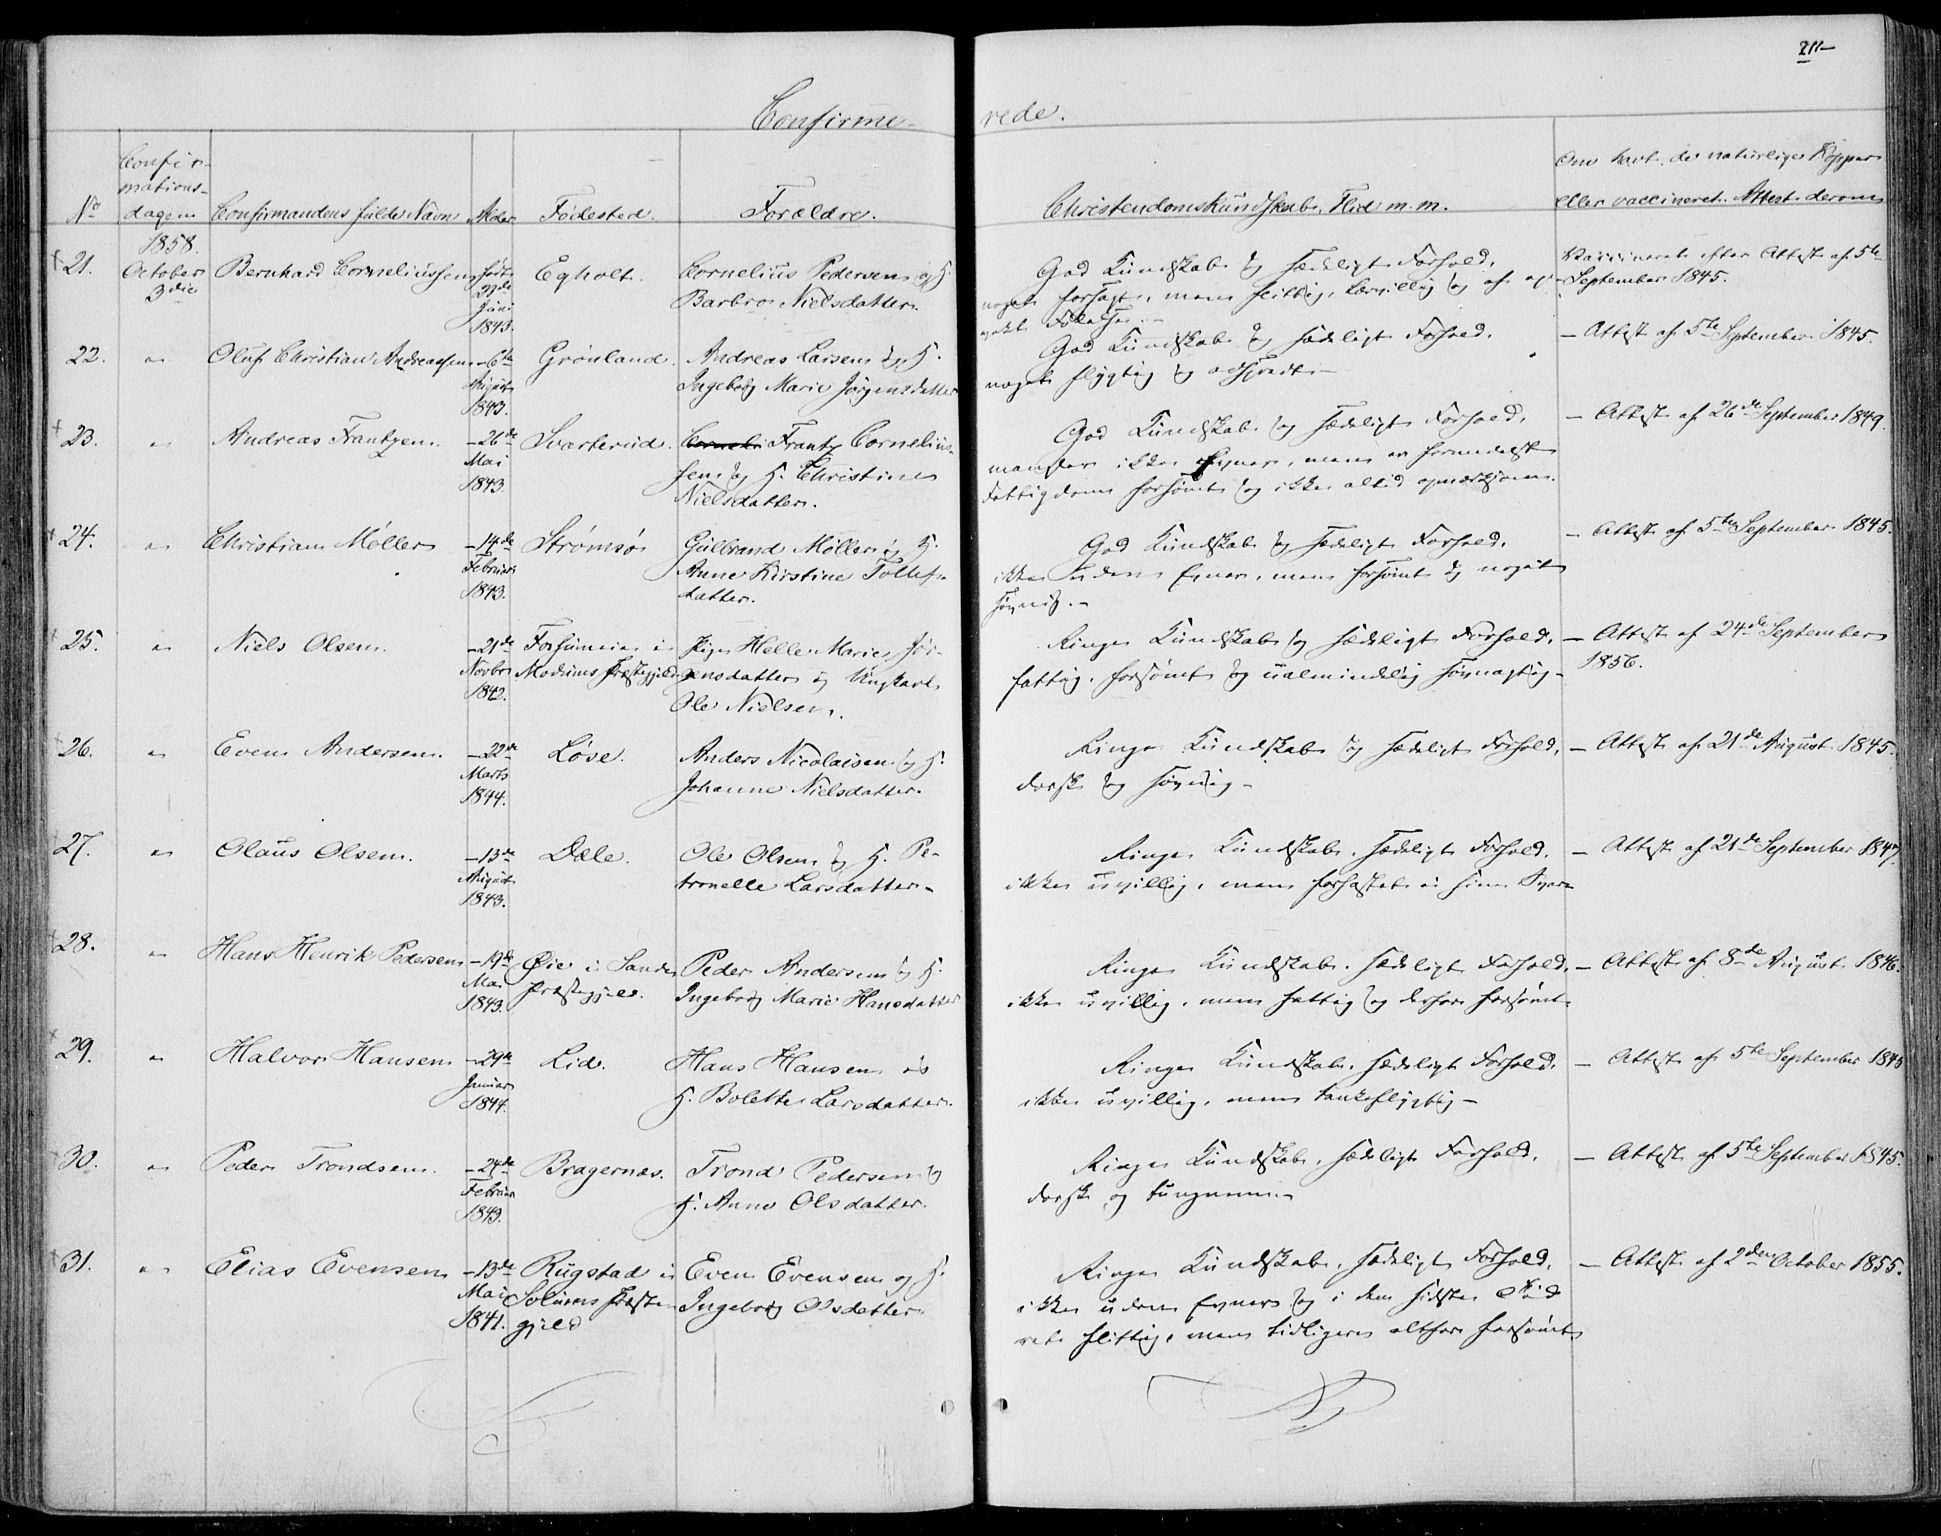 211
Confirme-
rede.
No
Confir-
mations-
dagen
Confirmandens fulde Navn
Alder
Fødested.
Forældre.
Christendomskundskab, Flid m.m.
Om havt de naturlige Kopper
eller vaccineret. Attest derom
1858.
21.
October
3die
Bernhard Corneliussen
født
27de
Juni
1843.
Egholt.
Cornelius Pedersen og H.
Barbro Nielsdatter.
God Kundskab og sædeligt Forhold,
noget forsagt, men flittig, lærvillig og af
Følelser.
Vaccineret efter Attest af 5te
September 1845.
22.
Oluf Christian Andreassen
- 6te
August
1843.
Grønland.
Andreas Larsen og H.
Ingeborg Marie Jørgensdatter
God Kundskab og sædeligt Forhold,
noget flygtig og adspredt.
- Attest af 5te September 1845.
23.
Andreas Frantzen.
- 26de
Mai
1843
Svarterud.
Frantz Cornelius-
sen og H. Christine
Nielsdatter.
God Kundskab og sædeligt Forhold,
mangler ikke Evner, men er formedelst
Fattigdom forsømt og ikke altid opmærksom.
- Attest af 26de September 1849.
24.
Christian Møller
- 14de
Februar
1843.
Strømsø
Gulbrand Møller og H.
Anne Kirstine Tollefs-
datter.
God Kundskab og sædeligt Forhold,
ikke uden Evner, men forsømt og noget
søvnig.-
- Attest af 5te September 1845.
25.
Niels Olsen.
- 21de
Novbr
1842.
i
Modums Præstegjeld
Pige Helle Marie Jør-
gensdatter og Ungkarl
Ole Nielsen.
Ringe Kundskab og sædeligt Forhold,
fattig, forsømt og ualmindelig søvnagtig-
- Attest af 24de September
1856.
26.
Even Andersen.
- 22de
Marts
1844.
Løse.
Anders Nicolaisen og H.
Johanne Nielsdatter.
Ringe Kundskab og sædeligt Forhold,
dorsk og søvnig-
- Attest af 21de August 1845.
27.
Olaus Olsen.
- 13de
August
1843.
Dæle.
Ole Olsen og H. Pe-
tronelle Larsdatter-
Ringe Kundskab, sædeligt Forhold,
ikke uvillig, men forhastet i sine Svar-
- Attest af 21de September 1847.
28.
Hans Henrik Pedersen
- 19de
Mai
1843.
Øie i Sande
Præstegjeld.
Peder Andersen og H.
Ingeborg Marie Hansdatter
Ringe Kundskab, sædeligt Forhold,
ikke uvillig, men fattig og derfor forsømt-
- Attest af 8de August 1846.
29.
Halvor Hansen
- 29de
Januar
1844.
Lid.
Hans Hansen og
H. Bolette Larsdatter.
Ringe Kundskab, sædeligt Forhold,
ikke uvillig, men tankeflygtig-
- Attest af 5te September 1845
30.
Peder Trondsen.
- 24de
Februar
1843.
Bragernæs.
Trond Pedersen og
H. Anne Olsdatter.
Ringe Kundskab, sædeligt Forhold,
dorsk og tungnem.-
- Attest af 5te September 1845.
31.
Elias Evensen
- 13de
Mai
1841.
Rugstad i
Solums Præste-
gjeld
Even Evensen og H.
Ingeborg Olsdatter
Ringe Kundskab, sædeligt Forhold,
ikke uden Evner og i den sidste Tid
ret flittig, men tidligere altfor forsømt
- Attest af 2den October 1855.